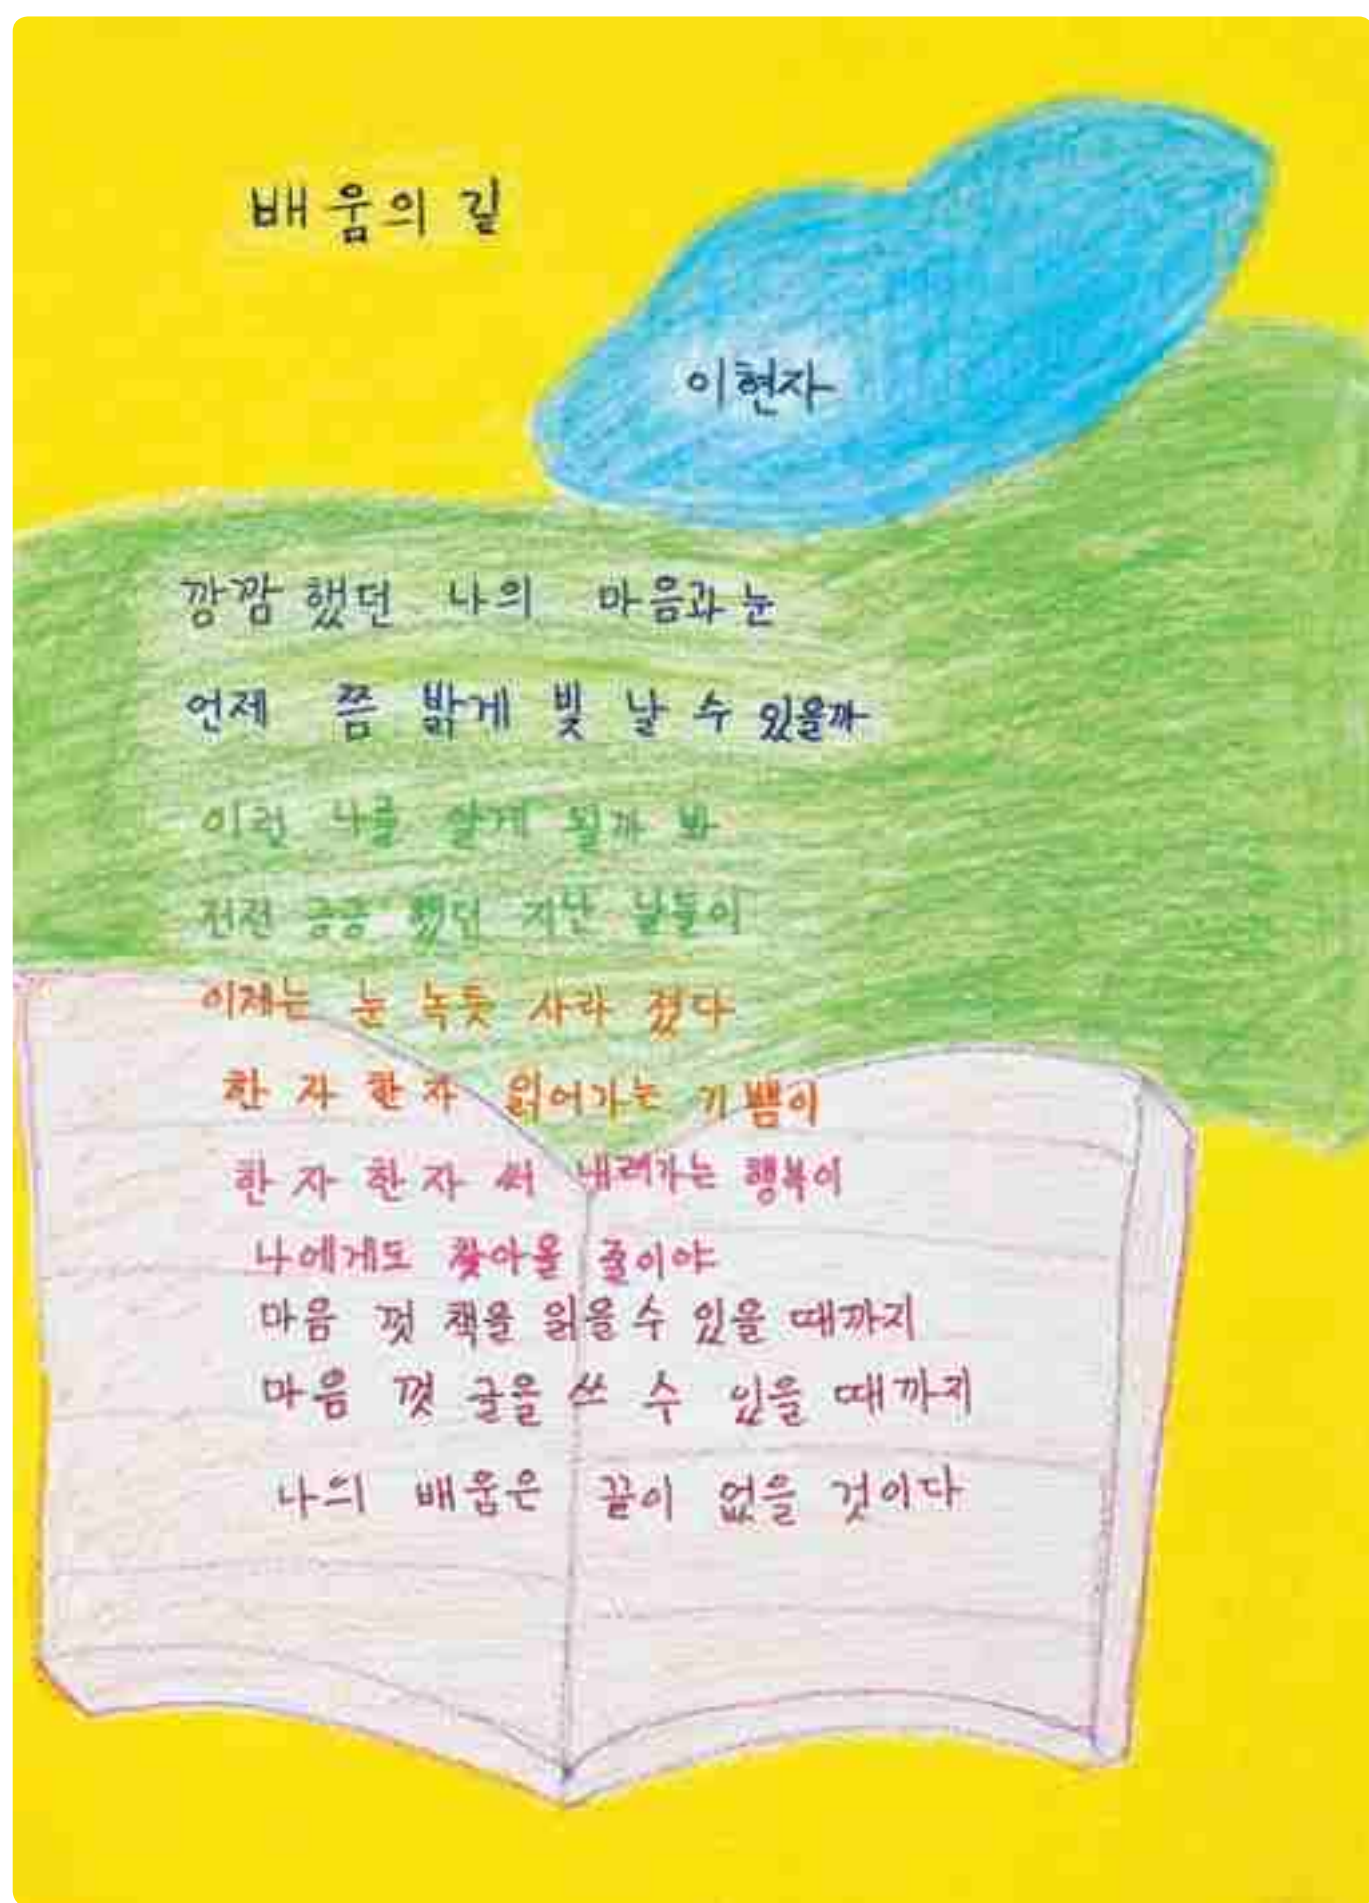 배움의 길
이현자
깡깜 했던 나의 마음과 눈
언제 쯤 밝게 빛 날 수 있을까
이런 나를 알게 될까 봐
전전 긍긍 했던 지난 날들이
이제는 눈 녹듯 사라 졌다
한 자 한 자 읽어가는 기쁨이
한 자 한 자 써 내려가는 행복이
나에게도 찾아올 줄이야
마음 껏 책을 읽을 수 있을 때까지
마음 껏 글을 쓰 수 있을 때까지
나의 배움은 끝이 없을 것이다